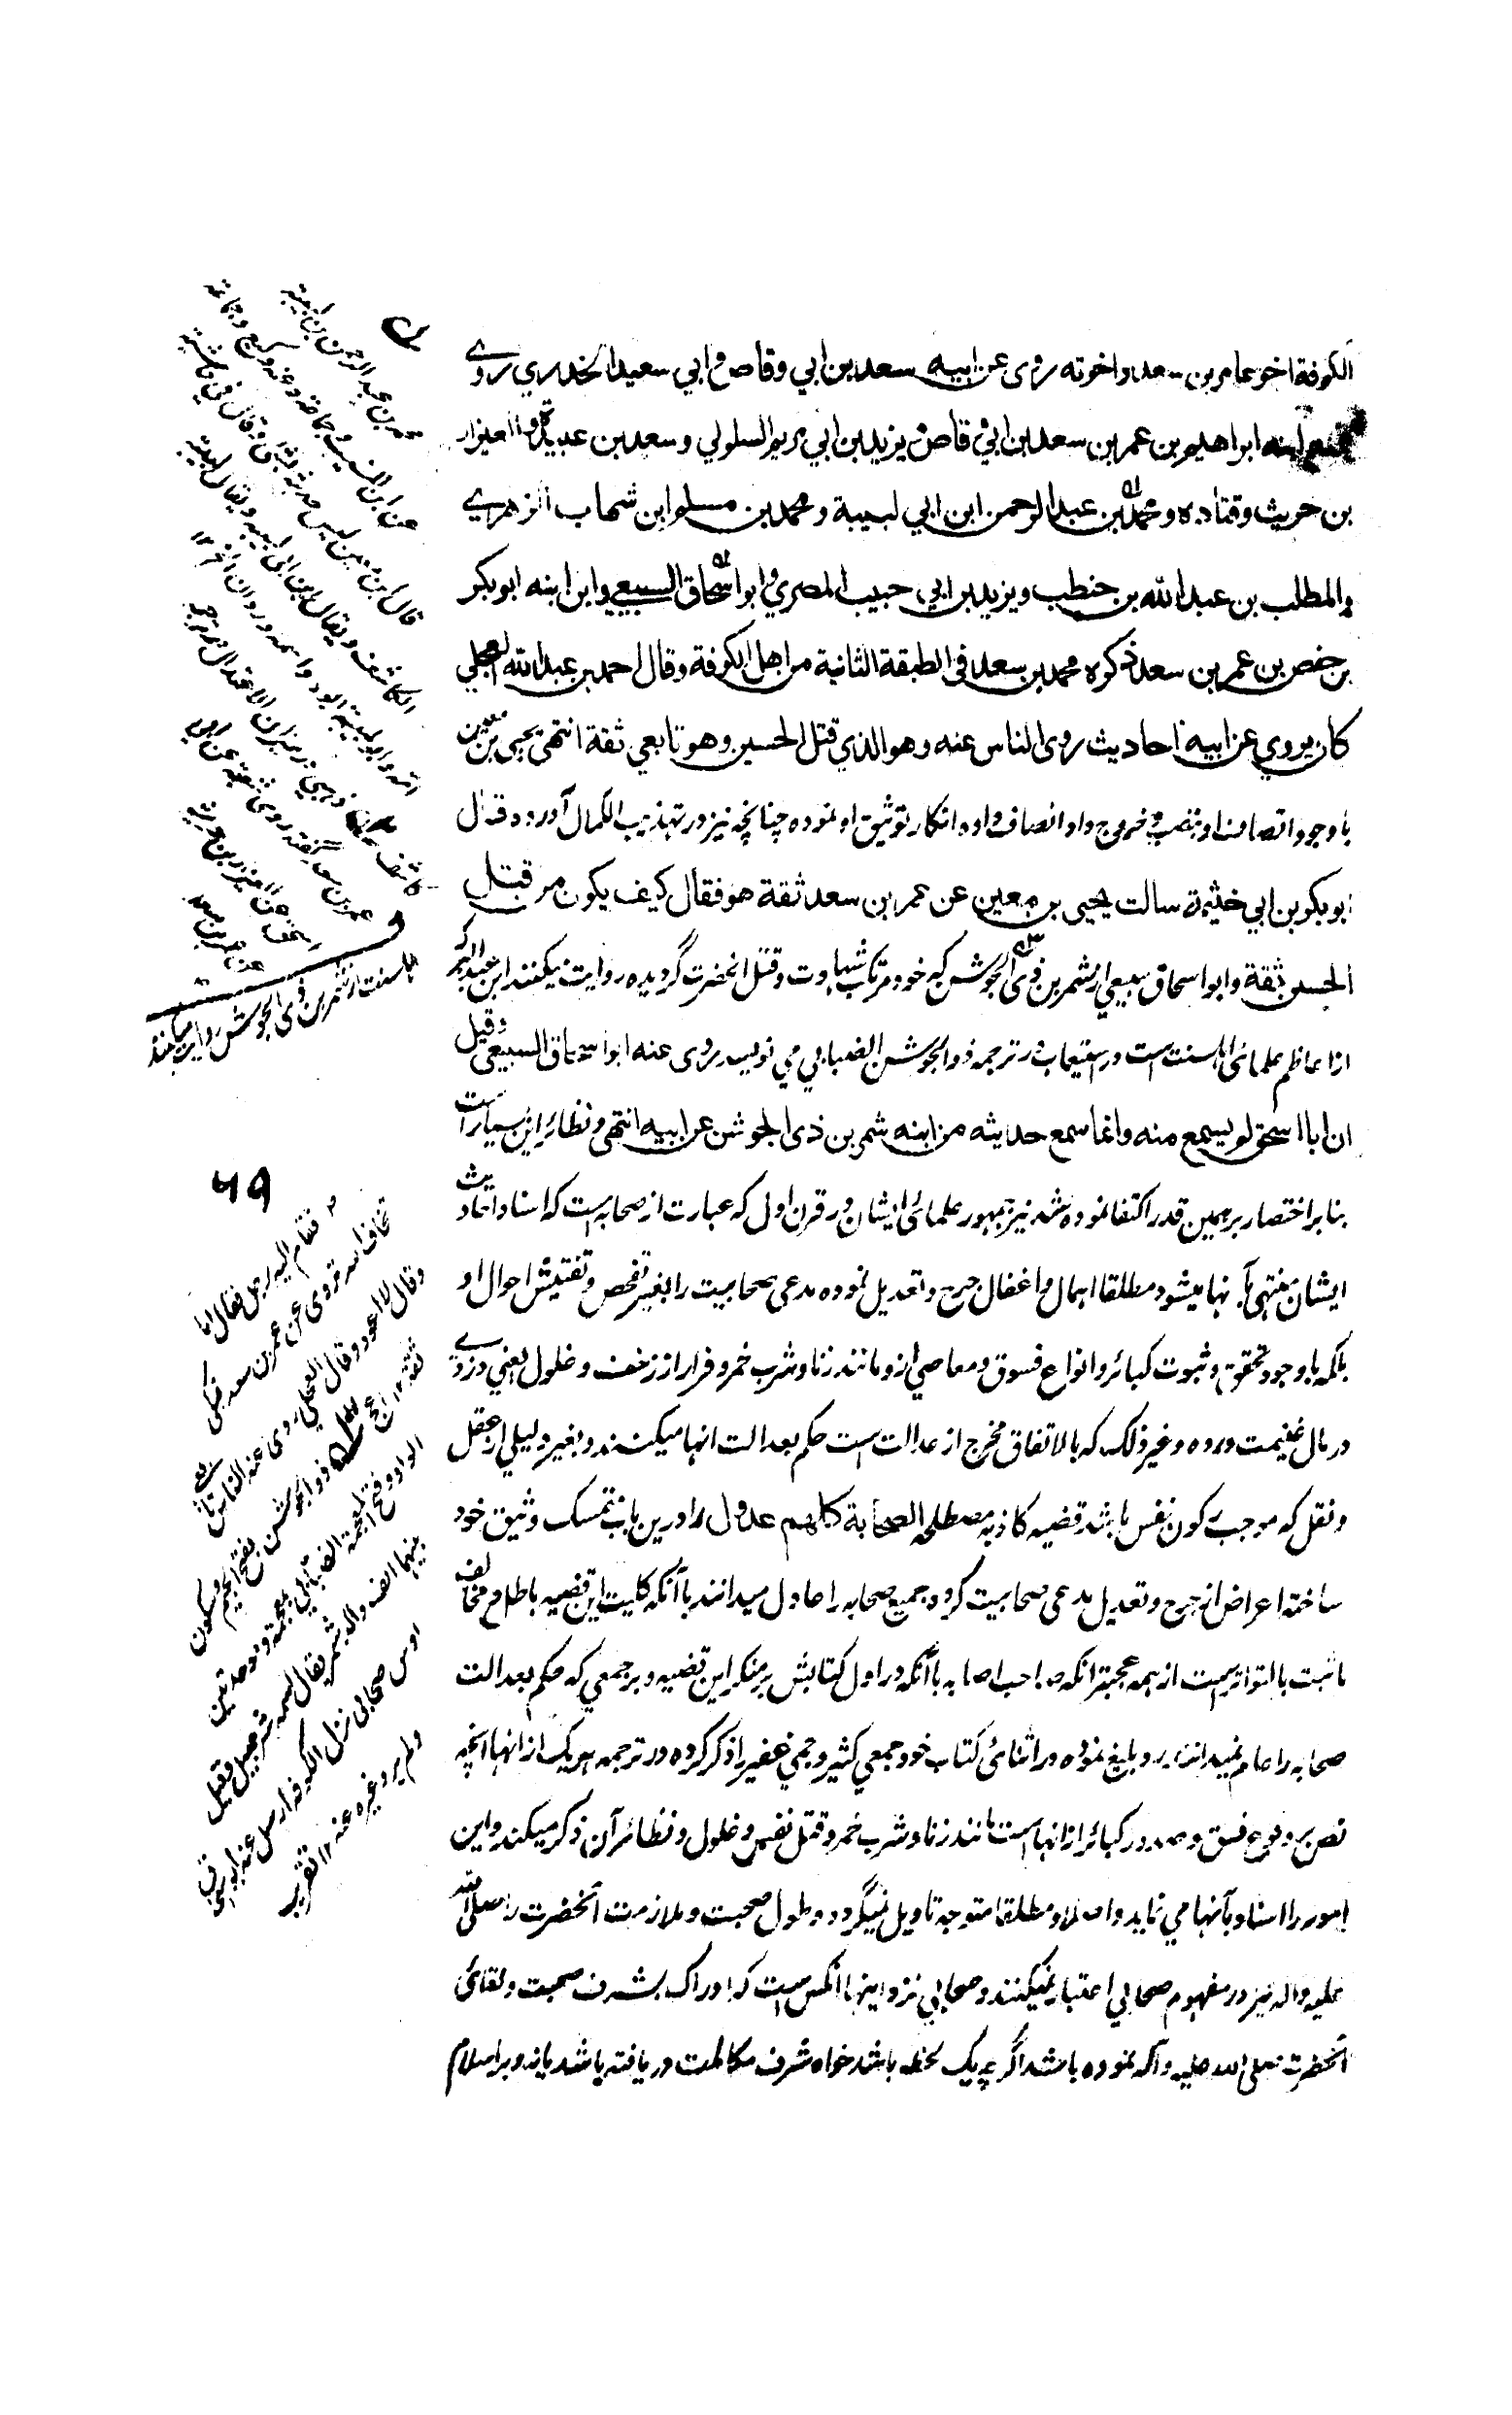 الكوفة اخو عامر بن سعد واخوته روى عن ابيه سعد بن ابي وقاص و ابي سعيد الخدري روے
ابنه ابراهيم بن عمر بن سعد بن ابي وقاص و يزيد بن ابي مريم السلولي وسعد بن عبيدة والعيزار
بن حريث وقتاده ومحمد بن عبد الرحمن ابن ابي لبيبة ومحمد بن مسلم ابن شهاب الزهرے
والمطلب بن عبد الله بن حنطب ويزيد بن ابي حبيب المصري و ابو اسحاق السبيعي وابن ابنه ابو بكر
بن حفص بن عمر بن سعد ذكره محمد بن سعد فى الطبقة الثانية من اهل الكوفة وقال احمد بن عبد الله العجلي
كان يروي عن ابيه احاديث روى الناس عنه وهو الذي قتل الحسين وهو تابعي ثقة انتهى يحيى بن معين
با وجود اتصاف او بنصب و خروج داد انصاف داده انكار توثيق او نموده چنانچه نيز در تهذيب الكمال آورده قال
ابو بكر بن ابي خثيمة سالت يحيى بن معين عن عمر ابن سعد ثقة هو فقال كيف يكون من قتل
الحسين ثقة و ابو اسحاق سبيعي از شمر بن ذى الجوشن كه خود مرتكب شهادت و قتل انحضرت گرديده روايت ميكنند ابن عبد البر كه
از اعاظم علمائ اهلسنت است در استيعاب در ترجمه ذو الجوشن الضبابي مي نويسد روى عنه ابو اسحاق السبيعي وقيل
ان ابا اسحق لم يسمع منه وانما سمع حديثه من ابنه شمر بن ذى الجوشن عن ابيه انتهى و نظائر اين بسيار است
بنا بر اختصار برهمين قدر اكتفا نموده شد نيز جمهور علمائ ايشان در قرن اول كه عبارت از صحابه است كه اسناد احاديث
ايشان منتهى بآنها ميشود مطلقا اهمال و اغفال جرح و تعديل نموده مدعى صحابيت را بغير تفحص و تفتيش احوال او
بلكه با وجود تحقق و ثبوت كبائر و انواع فسوق و معاصي ازو مانند زنا و شرب خمر و فرار از زحف و غلول يعني دزدے
در مال غنيمت و رده و غير ذلك كه بالاتفاق مخرج از عدالت است حكم بعدالت انها ميكنند و بغير دليلي از عقل
و نقل كه موجب ركون نفس باشد قضيه كاذبه مصطلحه الصحابة كلهم عدول را درين باب تمسك وثيق خود
ساخته اعراض از جرح و تعديل مدعى صحابيت كرده جميع صحابه را عادل ميدانند با آنكه كليت اين قضيه باطل و مخالف
ما ثبت بالتواتر است از همه عجبتر انكه صاحب اصابه با آنكه در اول كتابش بر منكر اين قضيه و بر جمعي كه حكم بعدالت
صحابه را عام نميدانند رد بليغ نموده در اثنائ كتاب خود جمعي كثير و جمي غفير را ذكر كرده در ترجمه هر يك از انها انچه
نص بر وقوع فسق و صدور كبائر از انها است مانند زنا و شرب خمر و قتل نفس و غلول و نظائر آن ذكر ميكند و اين
امور را اسناد بآنها مي نمايد و اصلا و مطلقا متوجه تاويل نميگردد و طول صحبت و ملازمت آنحضرت را صلى الله
عليه و اله نيز در مفهوم صحابي اعتبار نميكنند و صحابي نزد اينها انكس است كه ادراك بشرف صحبت و لقائ
آنحضرت صلى الله عليه و آله نموده باشد اگر چه يك لحظه باشد خواه شرف مكالمت دريافته باشد يا نه و بر اسلام
اهلسنت از شمر بن ذى الجوشن روايت ميكنند
٦٩
فقام اليه رجل فقال اما
تخاف الله تروى عن عمر بن سعد فبكى
وقال لا اعود وقال العجلي روى عنه الناس تابعي
ثقة
ذو الجوشن بفتح الجيم وسكون
الواو وفتح المعجمة الضبابي بمعجمة وموحدتين
بينهما الف والد شمر يقال اسمه شرحبيل وقيل
اوس صحابي نزل الكوفة ارسل عنه ابو اسحق
ولم يرو غيره عنه ١٢ تقريب